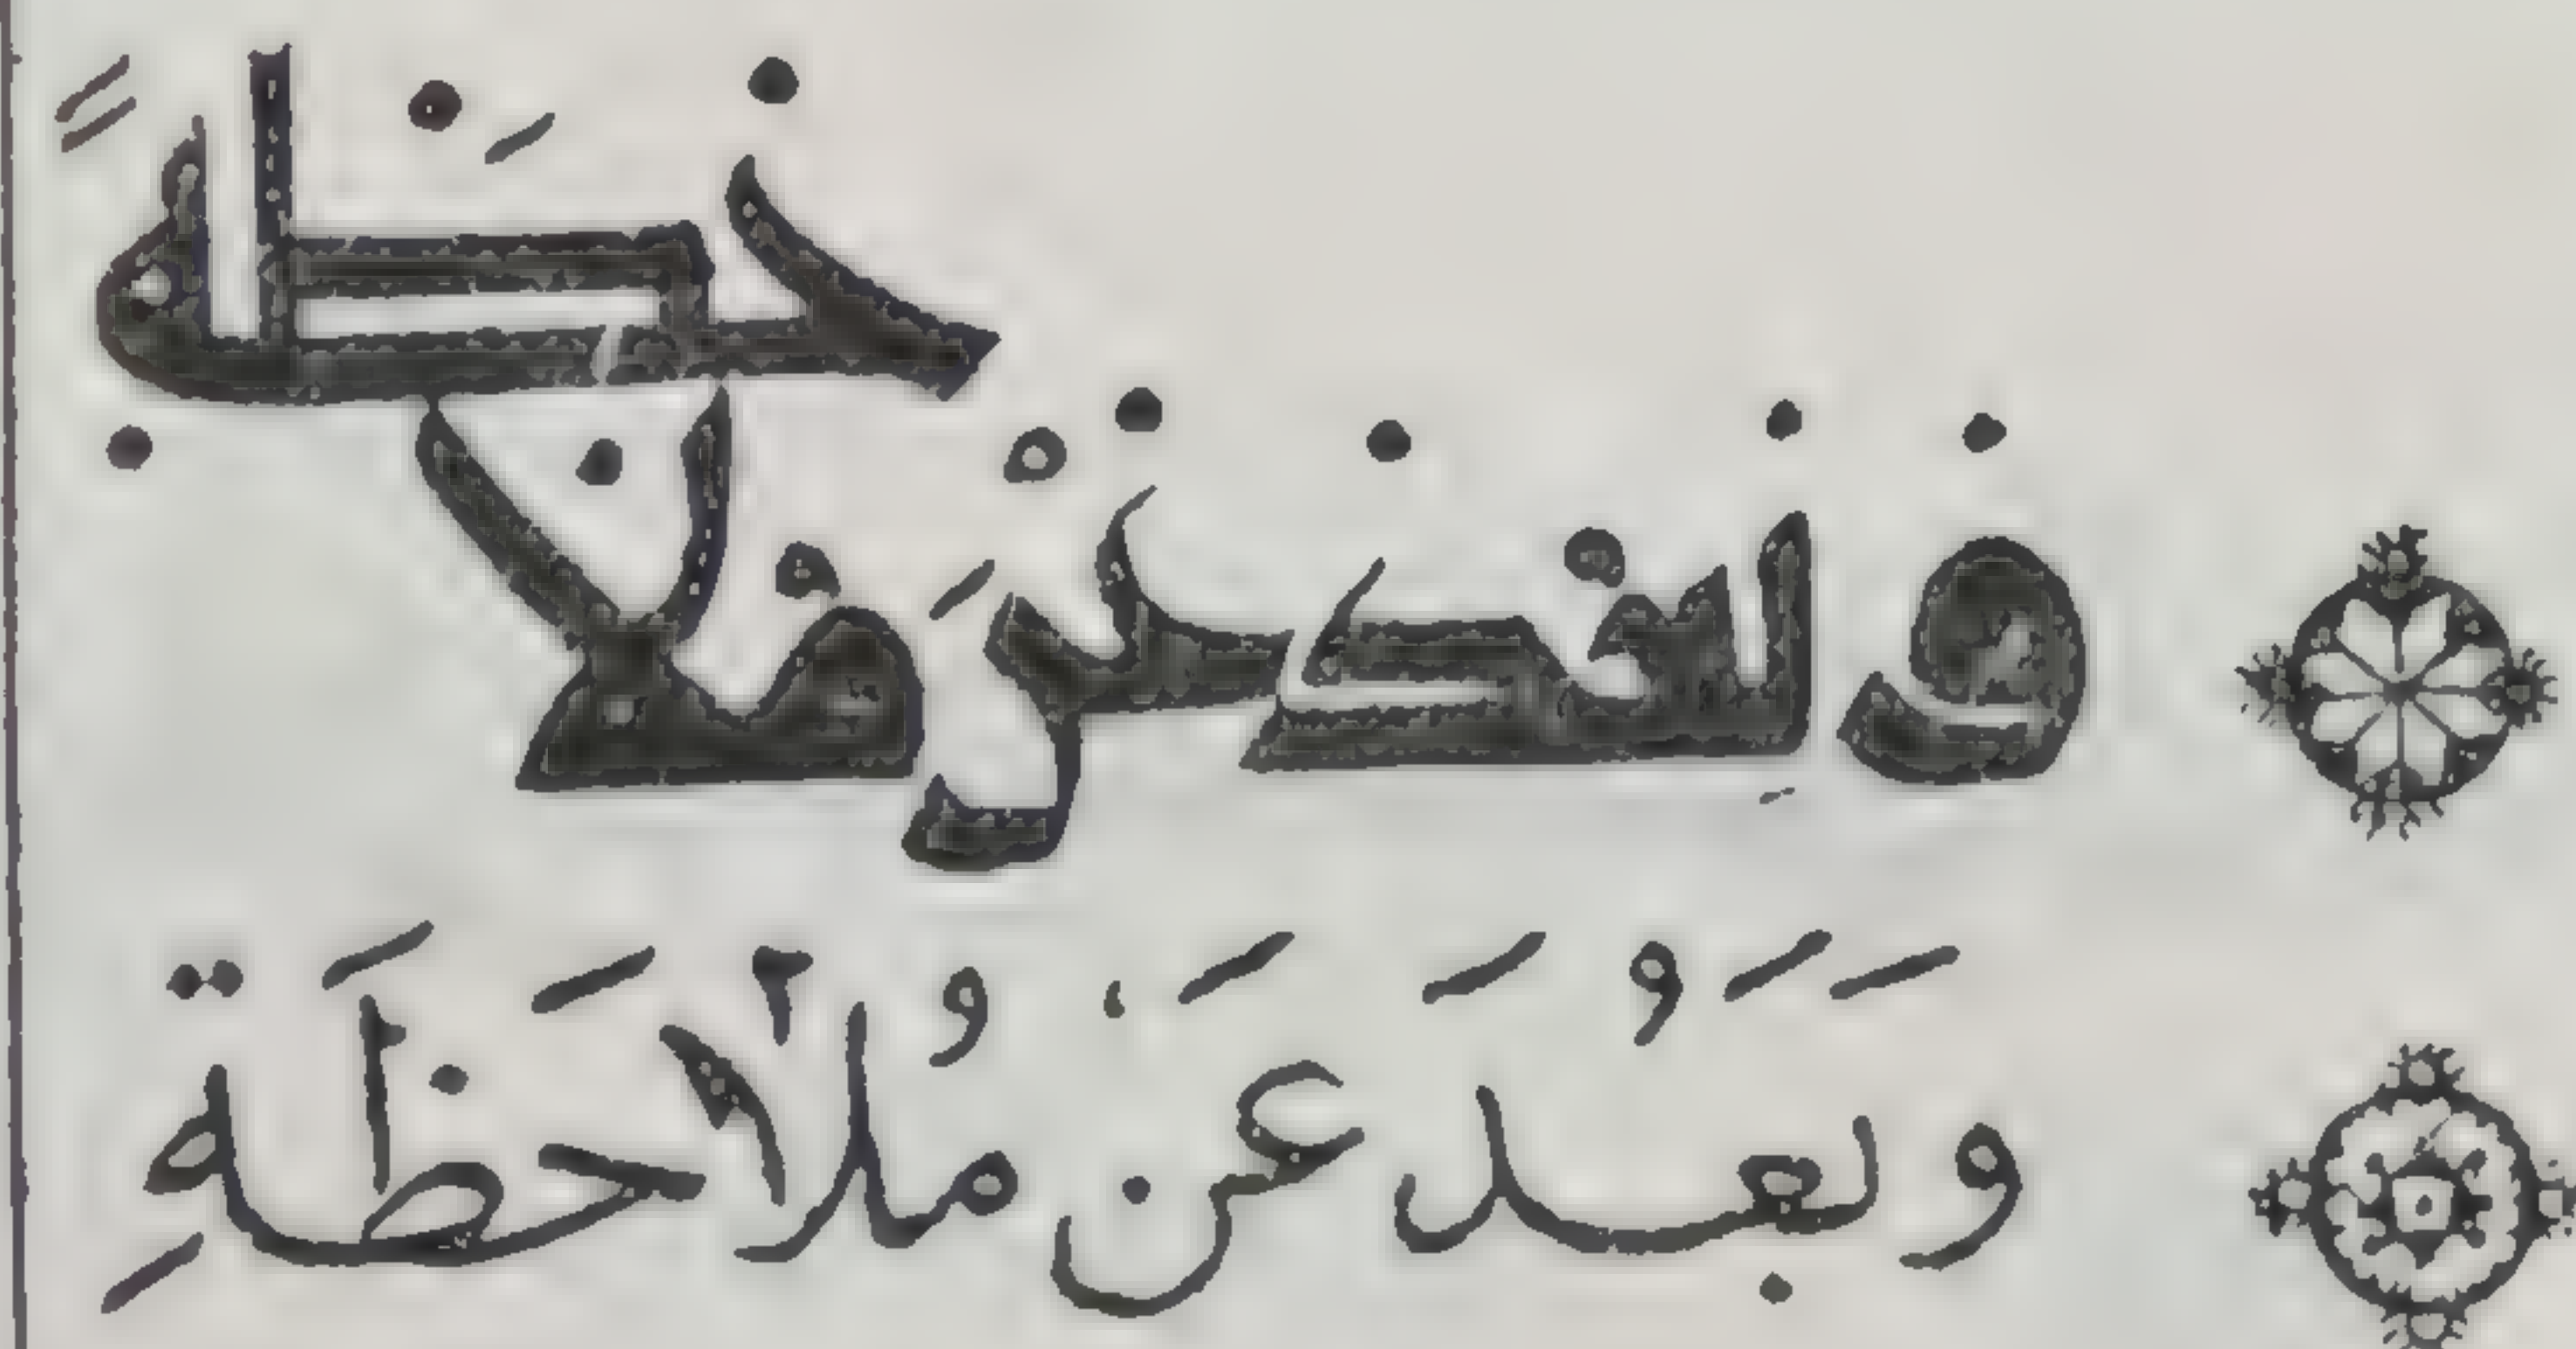 وبعد عن ملاحظة
وَبَعُدَ عَنْ مُلَاحَظَةِ